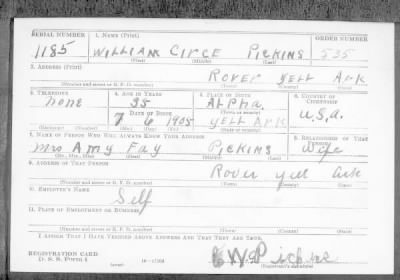 SERIAL NUMBER 1. NAME (Print) ORDER NUMBER
1185 WILLIAM CIRCE PICKINS 535
(First) (Middle) (Last)
2. ADDRESS (Print)
ROVER YELL ARK
(Number and street or R. F. D. number) (Town) (County) (State)
3. TELEPHONE 4. AGE IN YEARS 5. PLACE OF BIRTH 6. COUNTRY OF CITIZENSHIP
none 35 ALPHA,
DATE OF BIRTH (Town or county)
7 6 1905 YELL ARK U.S.A.
(Exchange) (Number) (Mo.) (Day) (Yr.) (State or country)
7. NAME OF PERSON WHO WILL ALWAYS KNOW YOUR ADDRESS 8. RELATIONSHIP OF THAT PERSON
Mrs Amy Fay PICKINS Wife
(Mr., Mrs., Miss) (First) (Middle) (Last)
9. ADDRESS OF THAT PERSON
Rover yell ark
(Number and street or R. F. D. number) (Town) (County) (State)
10. EMPLOYER'S NAME
Self
11. PLACE OF EMPLOYMENT OR BUSINESS
(Number and street or R. F. D. number) (Town) (County) (State)
I AFFIRM THAT I HAVE VERIFIED ABOVE ANSWERS AND THAT THEY ARE TRUE.
REGISTRATION CARD
D. S. S. FORM 1 (over) (Registrant's signature)